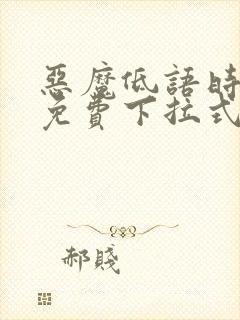 惡魔低語時
免費下拉式
郝賤